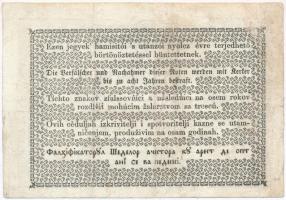 Ezen jegyek hamisitói s utánzói nyolcz évre terjedhető
börtönöztetéssel büntettetnek.
Die Verfälscher und Nachahmer dieser Noten werden mit Kerker
bis zu acht Jahren bestraft.
Tichto znakov zfalssovács a následnici na osem rokov
rozdlžit mohúcim žalárstvom sa trescú.
Ovih céduljah izkrivitelji i spotvoritelji kazne se utam-
ničenjem, produživim na osam godinah.